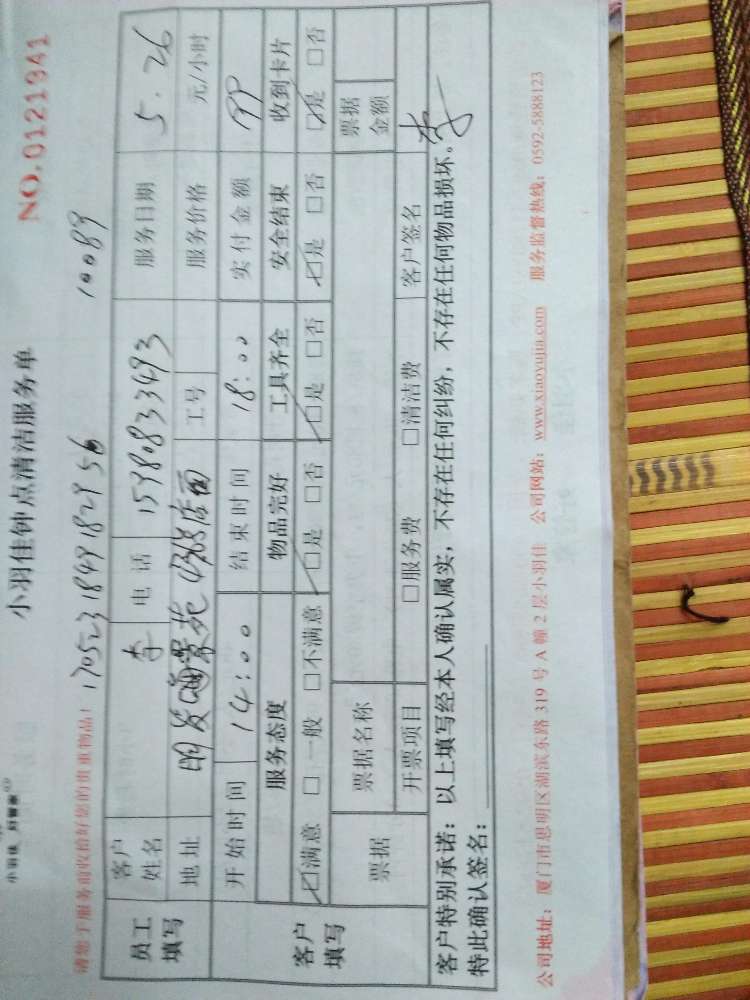 小羽佳 好管家
小羽佳钟点清洁服务单
NO.0121941
请您于服务前收拾好您的贵重物品！ 1705231849182956 10089
员工填写 客户姓名 李 电话 15980833493 服务日期 5.26
地址 明发海景苑 4268店面 工号 服务价格 元/小时
开始时间 14:00 结束时间 18:00 实付金额
客户填写 服务态度 物品完好 工具齐全 安全结束 收到卡片
☑满意 □一般 □不满意 ☑是 □否 ☑是 □否 ☑是 □否 ☑是 □否
票据 票据名称 票据金额
开票项目 □服务费 □清洁费 客户签名
客户特别承诺：以上填写经本人确认属实，不存在任何纠纷，不存在任何物品损坏。
特此确认签名： 李
公司地址：厦门市思明区湖滨东路 319 号 A 幢 2 层小羽佳 公司网站：www.xiaoyujia.com 服务监督热线：0592-5888123